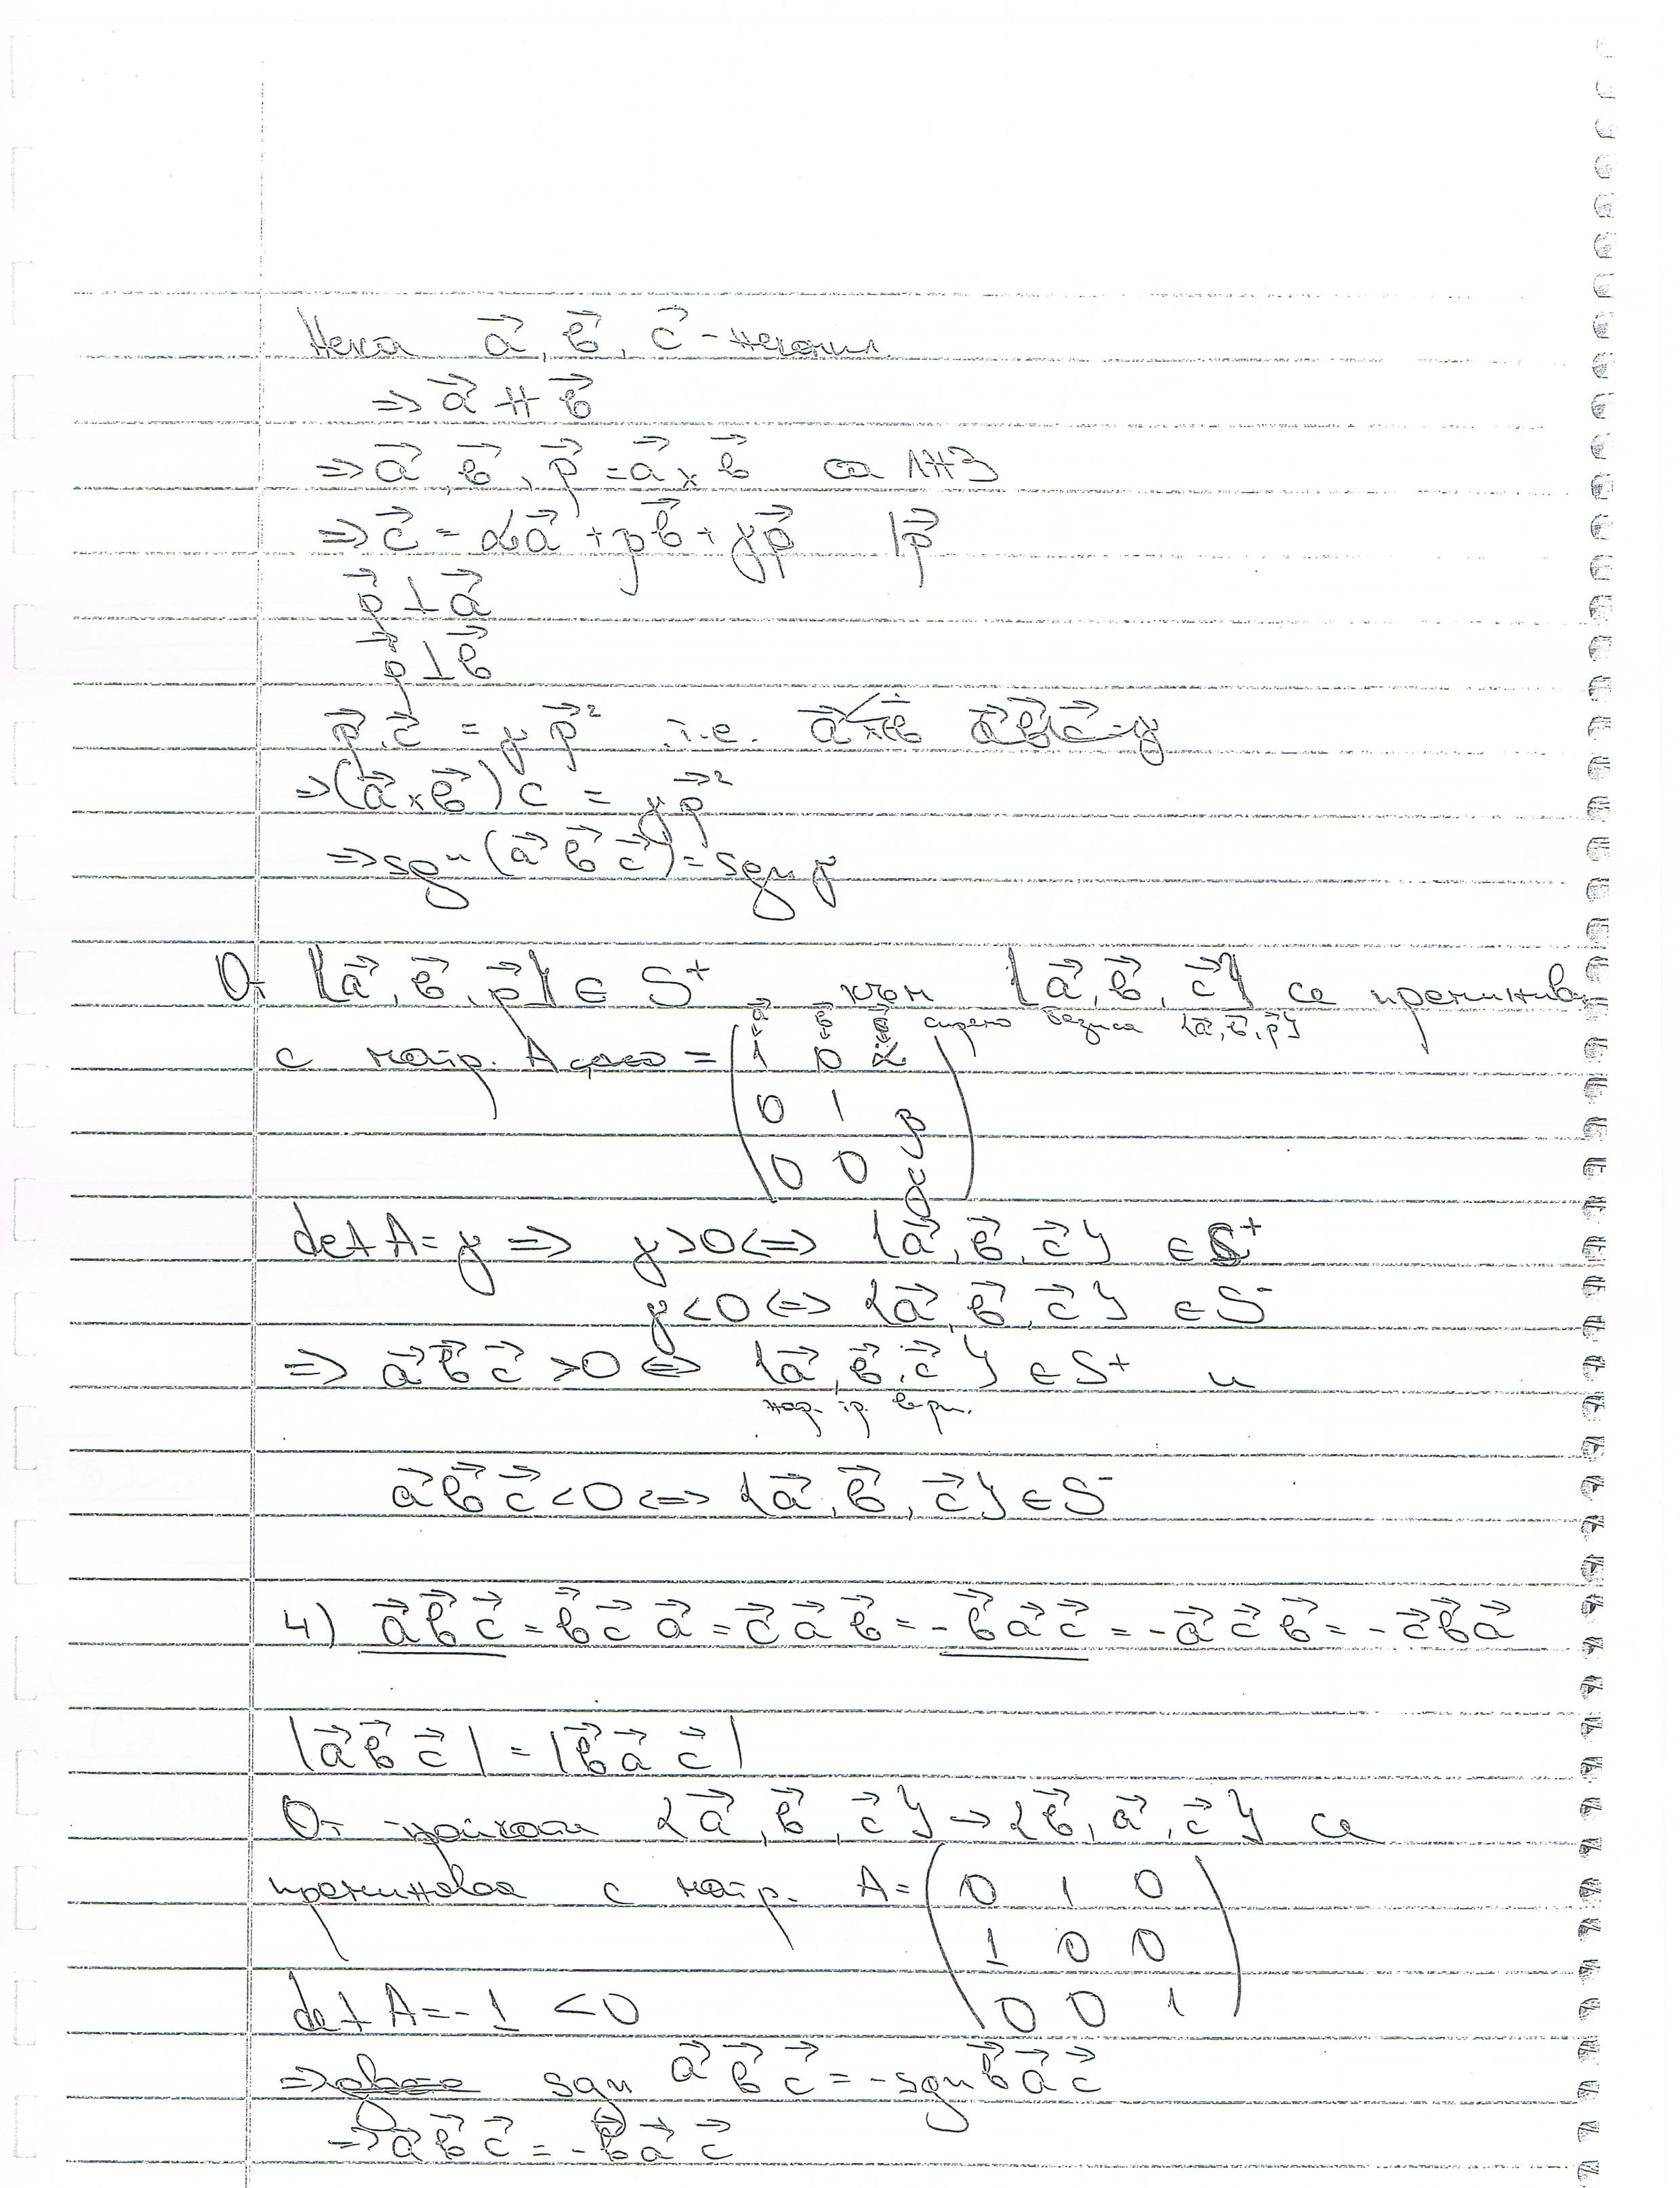 Нека a⃗, b⃗, c⃗ - некомпл.
=> a⃗ ∦ b⃗
=> a⃗, b⃗, p⃗ = a⃗ × b⃗ са ЛНЗ
=> c⃗ = αa⃗ + βb⃗ + γp⃗ |p⃗
p⃗ ⊥ a⃗
p⃗ ⊥ b⃗
p⃗.c⃗ = γp⃗² т.е.
=> (a⃗ × b⃗) c = γp⃗²
=> sgn (a⃗ b⃗ c⃗) = sgn γ
От {a⃗, b⃗, p⃗} ∈ S⁺ към {a⃗, b⃗, c⃗} се преминава
a⃗ b⃗ c⃗ спрямо базиса {a⃗, b⃗, p⃗}
с матр. A = (1 0 α
0 1 β
0 0 γ)
det A = γ => γ > 0 <=> {a⃗, b⃗, c⃗} ∈ S⁺
γ < 0 <=> {a⃗, b⃗, c⃗} ∈ S⁻
=> a⃗ b⃗ c⃗ > 0 <=> {a⃗, b⃗, c⃗} ∈ S⁺ и
нар. тр. в-ри.
a⃗ b⃗ c⃗ < 0 <=> {a⃗, b⃗, c⃗} ∈ S⁻
4) a⃗ b⃗ c⃗ = b⃗ c⃗ a⃗ = c⃗ a⃗ b⃗ = - b⃗ a⃗ c⃗ = - a⃗ c⃗ b⃗ = - c⃗ b⃗ a⃗
|a⃗ b⃗ c⃗| = |b⃗ a⃗ c⃗|
От тройката {a⃗, b⃗, c⃗} → {b⃗, a⃗, c⃗} се
преминава с матр. A = (0 1 0
1 0 0
0 0 1)
det A = -1 < 0
=> sgn a⃗ b⃗ c⃗ = - sgn b⃗ a⃗ c⃗
=> a⃗ b⃗ c⃗ = - b⃗ a⃗ c⃗